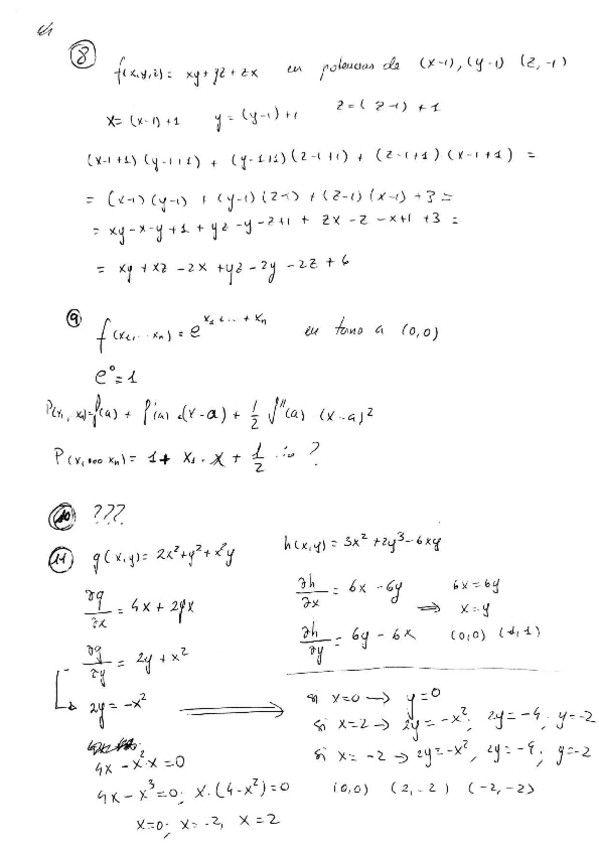 8
f(x,y,z) = xy + yz + zx en potencias de (x-1), (y-1) (z,-1)
x = (x-1)+1 y = (y-1)+1 z = (z-1)+1
(x-1+1)(y-1+1) + (y-1+1)(z-1+1) + (z-1+1)·(x-1+1) =
= (x-1)(y-1) + (y-1)(z-1) + (z-1)(x-1) + 3 =
= xy - x - y + 1 + yz - y - z + 1 + zx - z - x + 1 + 3 =
= xy + xz - 2x + yz - 2y - 2z + 6
9
f(x₁, ... xₙ) = e^(x₁ + ... + xₙ) en torno a (0,0)
e⁰ = 1
P(x₁, xₙ) = f(a) + f'(a)·(x-a) + 1/2 f''(a) (x-a)²
P(x₁, ... xₙ) = 1 + x₁ · x + 1/2 ?
10 ???
11 g(x,y) = 2x² + y² + x²y h(x,y) = 3x² + 2y³ - 6xy
∂g/∂x = 4x + 2yx ∂h/∂x = 6x - 6y 6x = 6y
⇒ x = y
∂g/∂y = 2y + x² ∂h/∂y = 6y - 6x (0,0) (1,1)
2y = -x² ⟹ si x=0 → y=0
si x=2 → 2y = -x², 2y = -4; y = -2
4x - x²·x = 0 si x = -2 → 2y = -x², 2y = -4; y = -2
4x - x³ = 0; x·(4-x²) = 0 (0,0) (2,-2) (-2,-2)
x=0; x=-2, x=2